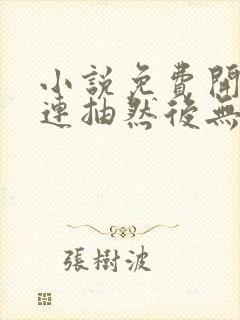 小說免費開
連抽然後無
張樹波